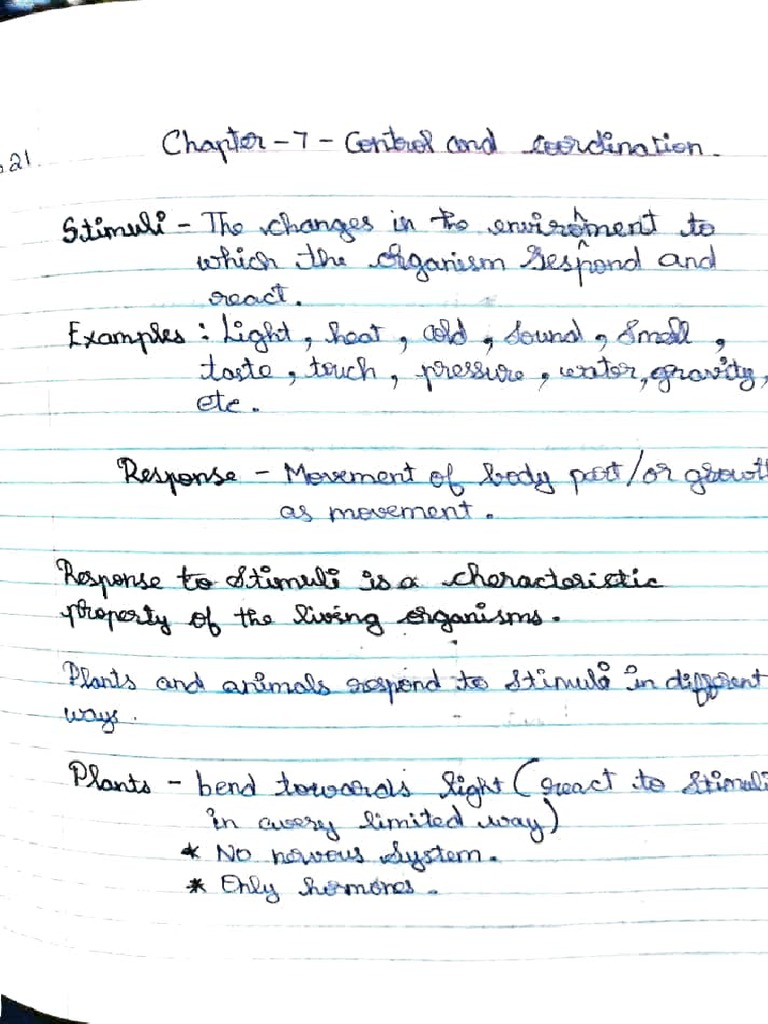 21.
Chapter - 7 - Control and coordination.
Stimuli - The changes in the environment to
which the organism respond and
react.
Examples : Light, heat, cold, sound, smell,
taste, touch, pressure, water, gravity,
etc.
Response - Movement of body part/or growth
as movement.
Response to stimuli is a characteristic
property of the living organisms.
Plants and animals respond to stimuli in different
ways.
Plants - bend towards light (react to stimuli
in a very limited way)
* No nervous system.
* Only hormones.